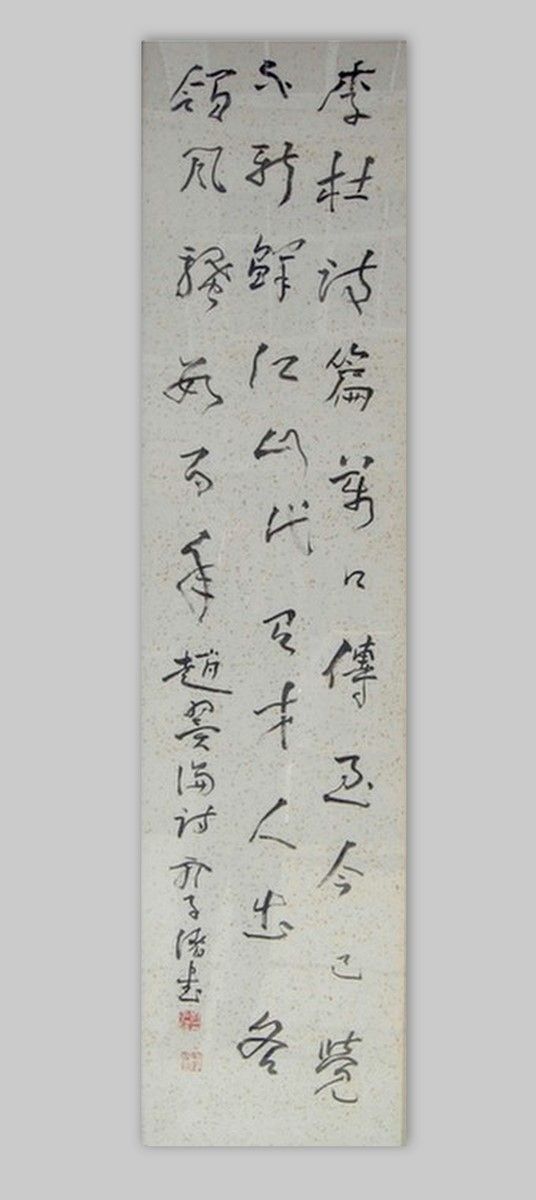 李杜詩篇萬口傳至今已覺
不新鮮江山代有才人出各
領風騷數百年趙翼論詩子書